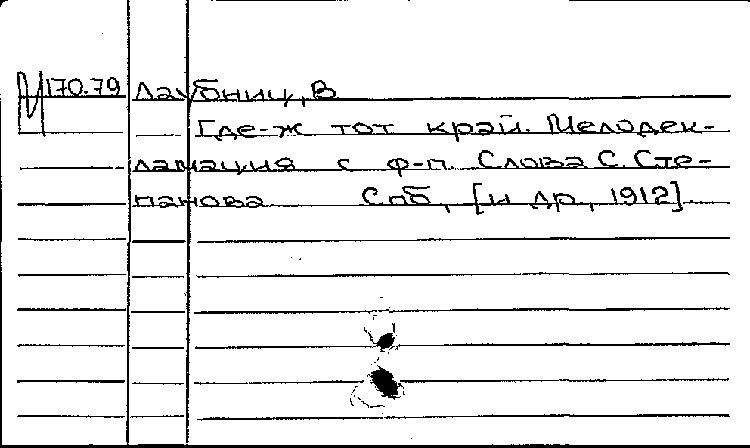 М 170.79 Лаубниц, В
Где-ж тот край. Мелодек-
ламация с ф-п. Слова С. Сте-
панова Спб, [и др., 1912]